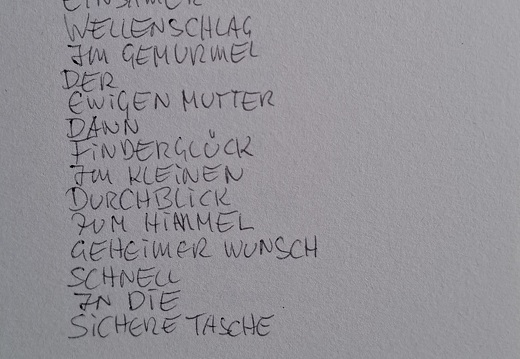 EINSAMER
WELLENSCHLAG
IM GEMURMEL
DER
EWIGEN MUTTER
DANN
FINDERGLÜCK
IM KLEINEN
DURCHBLICK
ZUM HIMMEL
GEHEIMER WUNSCH
SCHNELL
IN DIE
SICHERE TASCHE